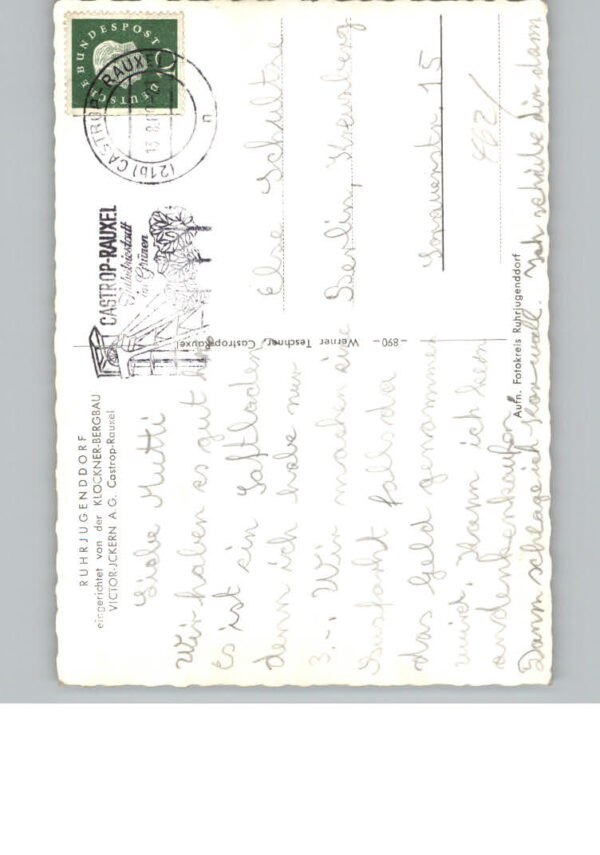 RUHRJUGENDDORF
eingerichtet von der KLÖCKNER-BERGBAU
VICTOR-ICKERN A.G. Castrop-Rauxel
Liebe Mutti
Wir haben es gut hier
Es ist ein Saftladen
denn ich habe nur
3,-. Wir machen eine
falls da
das Geld genommen
wird. Kann ich kein
andenken kaufen
Dann schlage ich Krawall. Ich schreibe dir dann
- 890 - Werner Teschner, Castrop-Rauxel
Aufn. Fotokreis Ruhrjugenddorf
CASTROP-RAUXEL
Industriestadt
im Grünen
(21b) CASTROP-RAUXEL
u
DEUTSCHE BUNDESPOST
10
Else Schultze
Berlin, Kreuzberg
15
462/